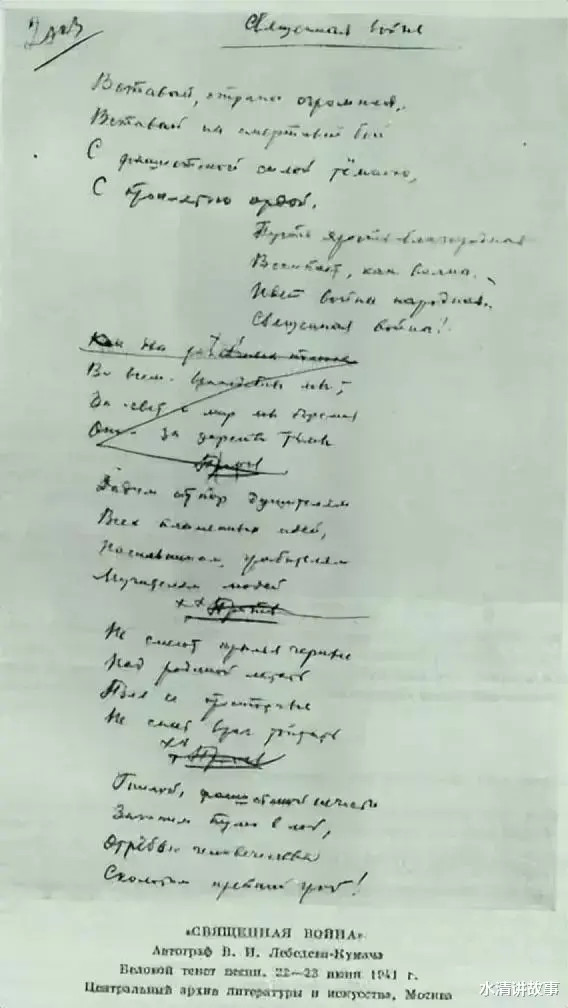 Священная война
Вставай, страна огромная,
Вставай на смертный бой
С фашистской силой тёмною,
С проклятою ордой.
Пусть ярость благородная
Вскипает, как волна,
Идет война народная,
Священная война!
Как два
Во всем враждебны мы;
За свет и мир мы боремся
Они – за царство тьмы
Припев
Дадим отпор душителям
Всех пламенных идей,
Насильникам, грабителям
Мучителям людей
Припев
Не смеют крылья черные
Над родиной летать
Поля ее просторные
Не смеет враг топтать
Припев
Гнилой фашистской нечисти
Загоним пулю в лоб,
Отребью человечества
Сколотим крепкий гроб!
«СВЯЩЕННАЯ ВОЙНА»
Автограф В. И. Лебедева-Кумача
Беловой текст песни. 22—23 июня 1941 г.
Центральный архив литературы и искусства, Москва
水清讲故事